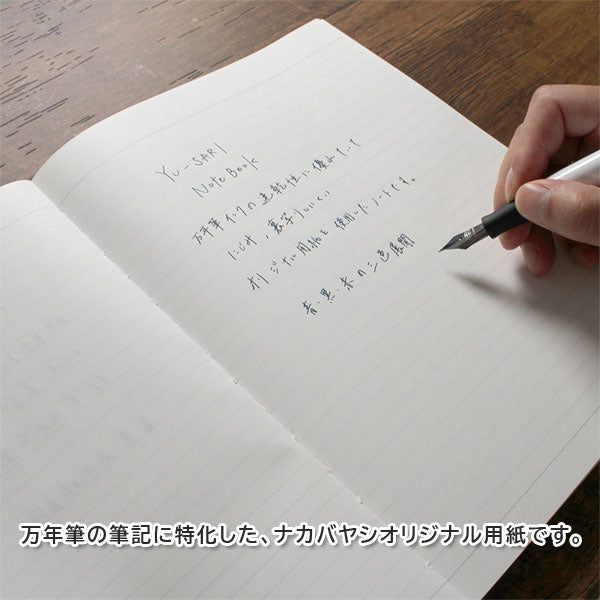 Yu-SARI
NoteBook
万年筆インクの速乾性に優れていて
にじみ、裏うつりしにくい
オリジナル用紙を使用したノートです。
青・黒・赤の三色展開
万年筆の筆記に特化した、ナカバヤシオリジナル用紙です。